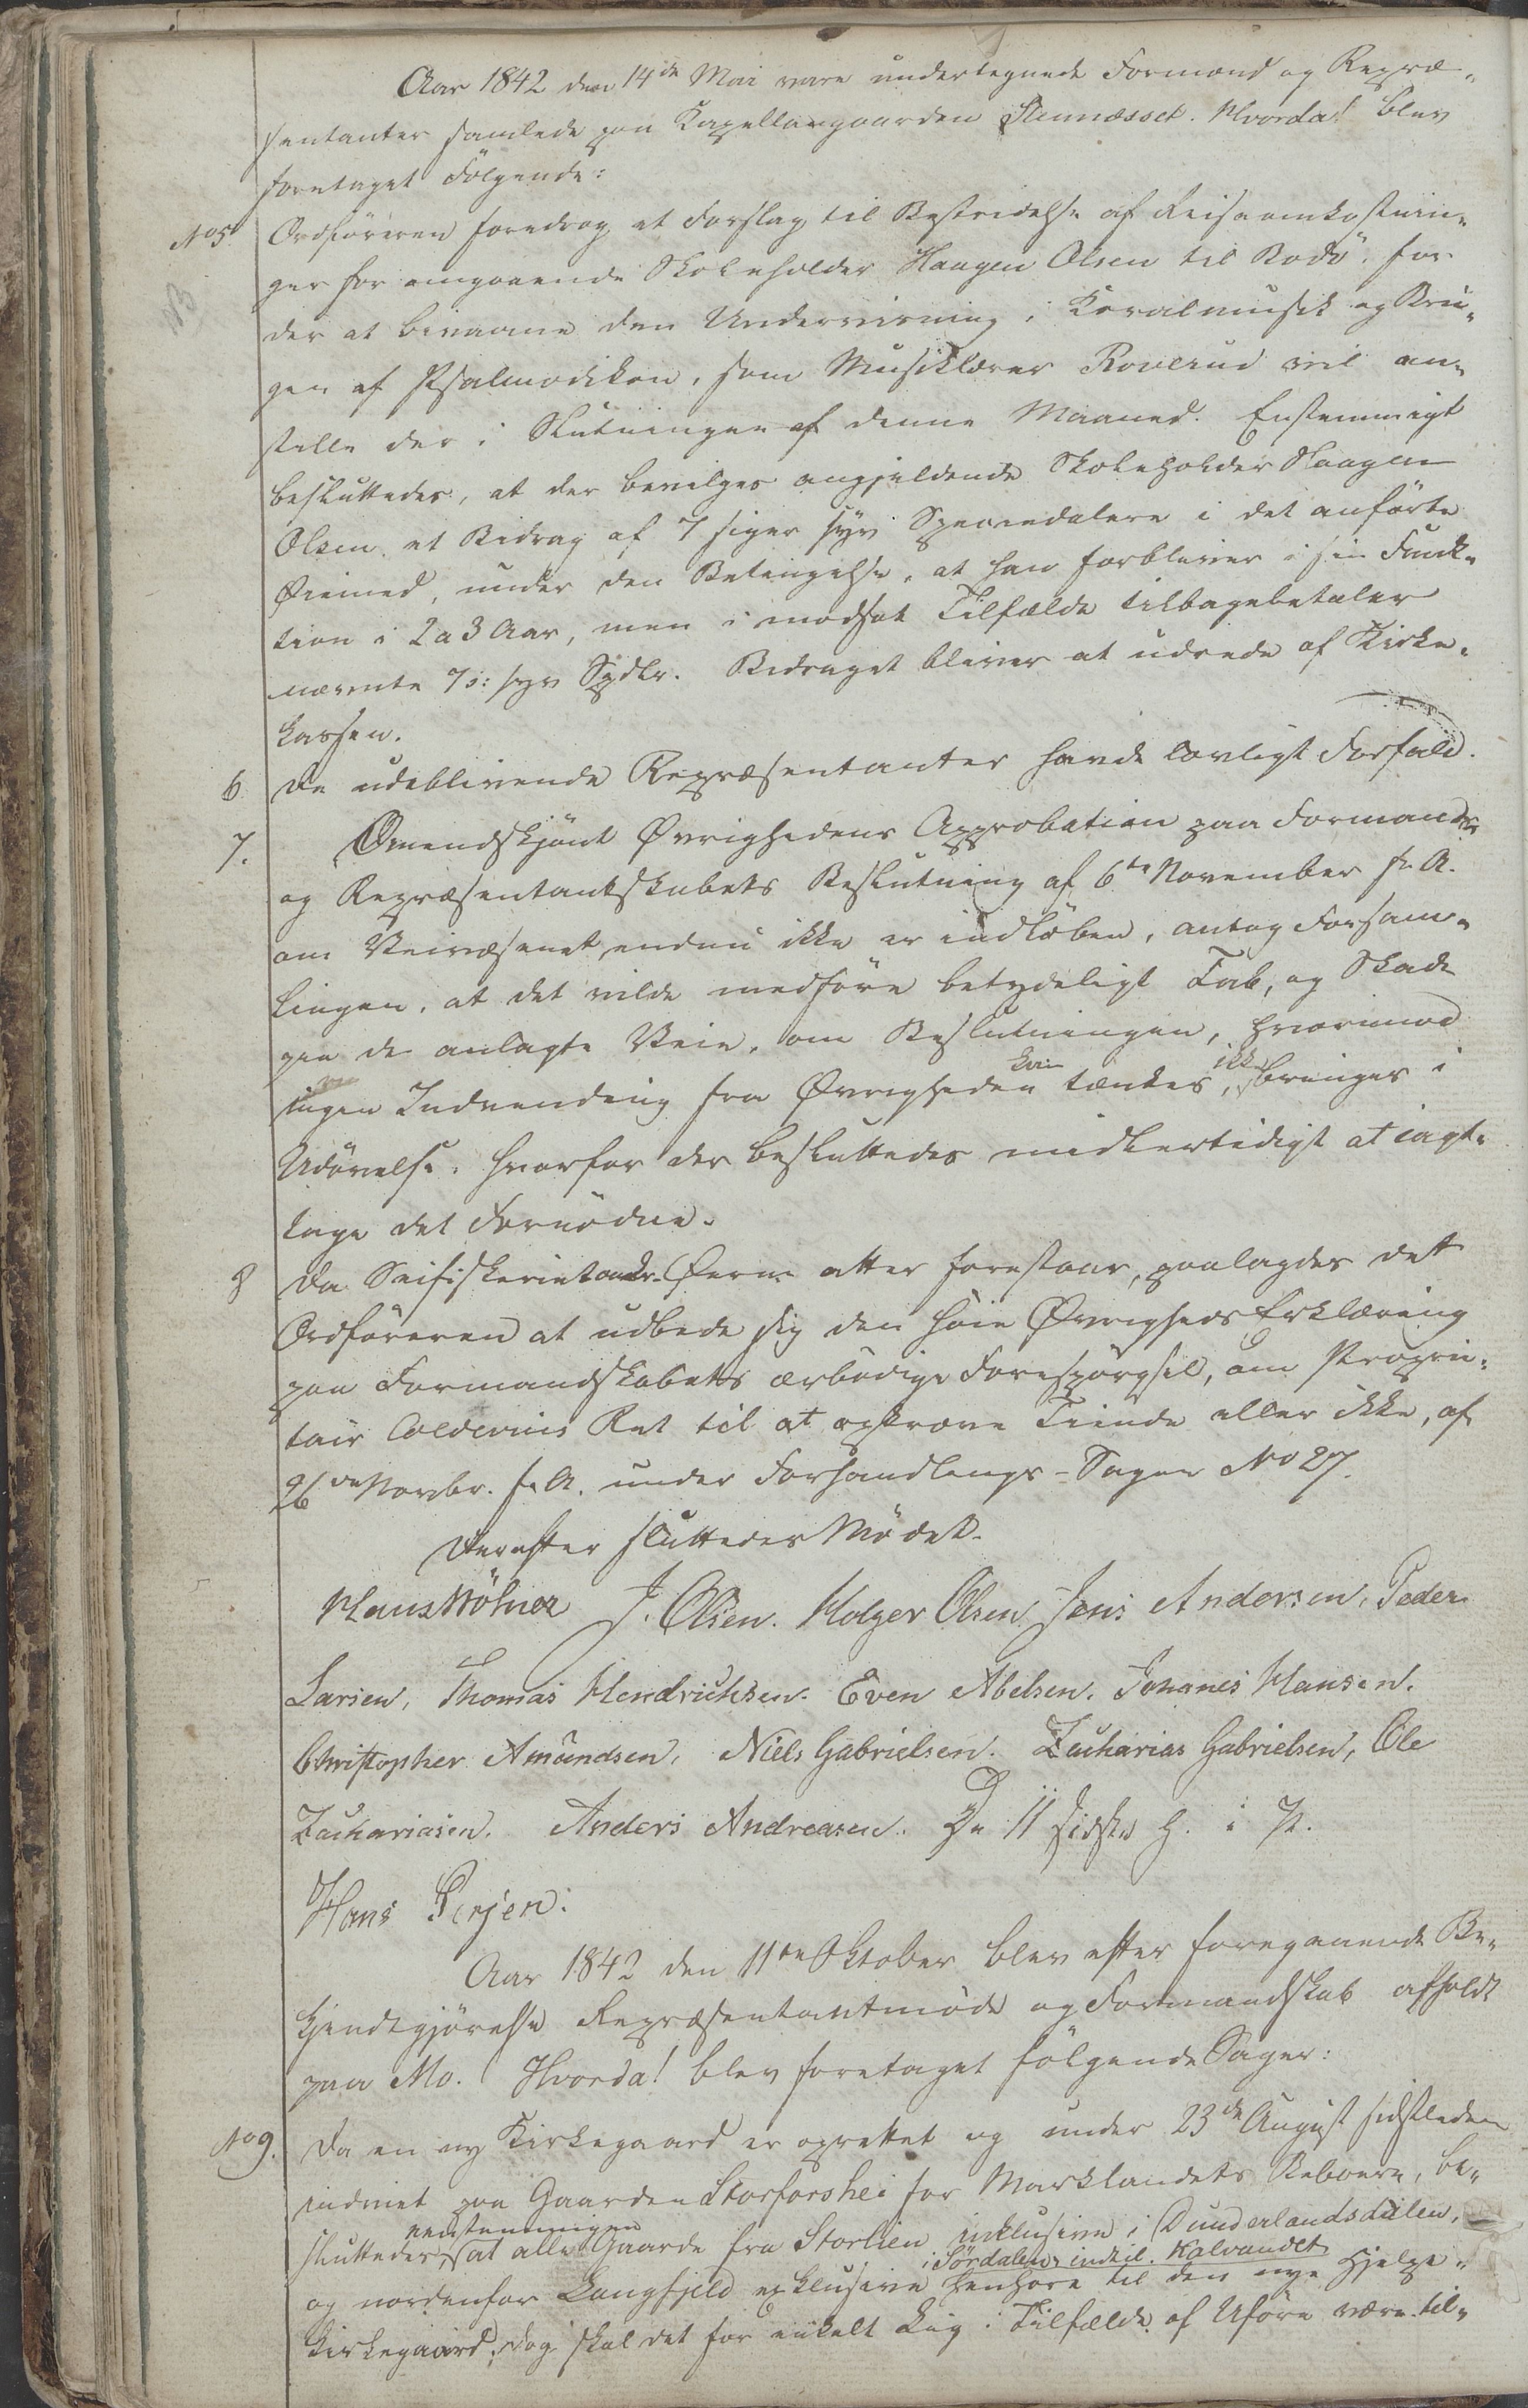 Aar 1842 den 14de Mai vare undertegnede Formænd og Repræ-
sentanter samlede paa Kapellangaarden Stennæsset. Hvorda! blev
foretaget Følgende:
No 5. Ordføreren foredrog et Forslag til Bestridelse af Reiseomkostnin-
ger for omgaaende Skoleholder Haagen Olsen til Bodö, for
der at bivaane den Undervisning i Koralmusik og Bru-
gen af Psalmodikon, som Musiklærer Roverud vil an-
stille der i Slutningen af denne Maaned. Enstemmigt
besluttedes, at der bevilges angjeldende Skoleholder Haagen
Olsen et Bidrag af 7 siger syv Speciedalere i det anførte
Øiemed, under den Betingelse, at han forbliver i sin Funk-
tion i 2 a 3 Aar, men i modsat Tilfælde tilbagebetaler
nævnte 7 ɔ: syv Spdlr. Bidraget bliver at udrede af Kirke-
kassen.
6 De udeblivende Repræsentanter havde lovligt Forfald.
7. Omendskjönt Øvrighedens Approbation paa Formands-
og Repræsentantskabets Beslutning af 6te November f. A.
om Veivæsenet endnu ikke er indløben, antog Forsam-
lingen, at det vilde medføre betydeligt Tab, og Skade
paa de anlagte Veie, om Beslutningen, hvorimod
kan ikke
ingen Indvending fra Øvrigheden tænkes, bringes i
Udøvelse, hvorfor der besluttedes midlertidigt at iagt-
tage det Fornödne.
8 Da Seifiskeriet under Øerne atter forestaar, paalagdes det
Ordføreren at udbede sig den höie Øvrigheds Erklæring
paa Formandskabets ærbödige Forespörgsel, om Proprie-
tair Coldevins Ret til at opkræve Tiende eller ikke, af
26de Novbr. f. A. under Forhandlings-Sagen No 27.
Derefter sluttedes Mødet.
Hans J. Olsen. Holger Olsen Jens Andersen, Peder
Larsen, Thomas Hendrichsen. Even Abelsen. Johanes Hansen.
Christopher Amundsen, Niels Gabrielsen. Zacharias Gabrielsen, Ole
Zachariasen. Anders Andreasen. De 11 sidste h. i P.
Hans
Aar 1842 den 11te Oktober blev efter foregaaende Be-
kjendtgjørelse Repræsentantmöde og Formandskab afholdt
paa Mo. Hvorda! blev foretaget følgende Sager:
No 9. Da en ny Kirkegaard er oprettet og under 23de August sidstleden
indviet paa Gaarden Storforshei for Marklandets Beboere, be-
eenstemmigen
sluttedes, at alle Gaarde fra Storlien inklusive i Dunderlandsdalen,
i Sördalen indtil Kalvandet
og nordenfor Langfjeld exklusive henhøre til den nye Hjelpe-
Kirkegaard, dog skal det for enkelt Liig i Tilfælde af Uføre være til-